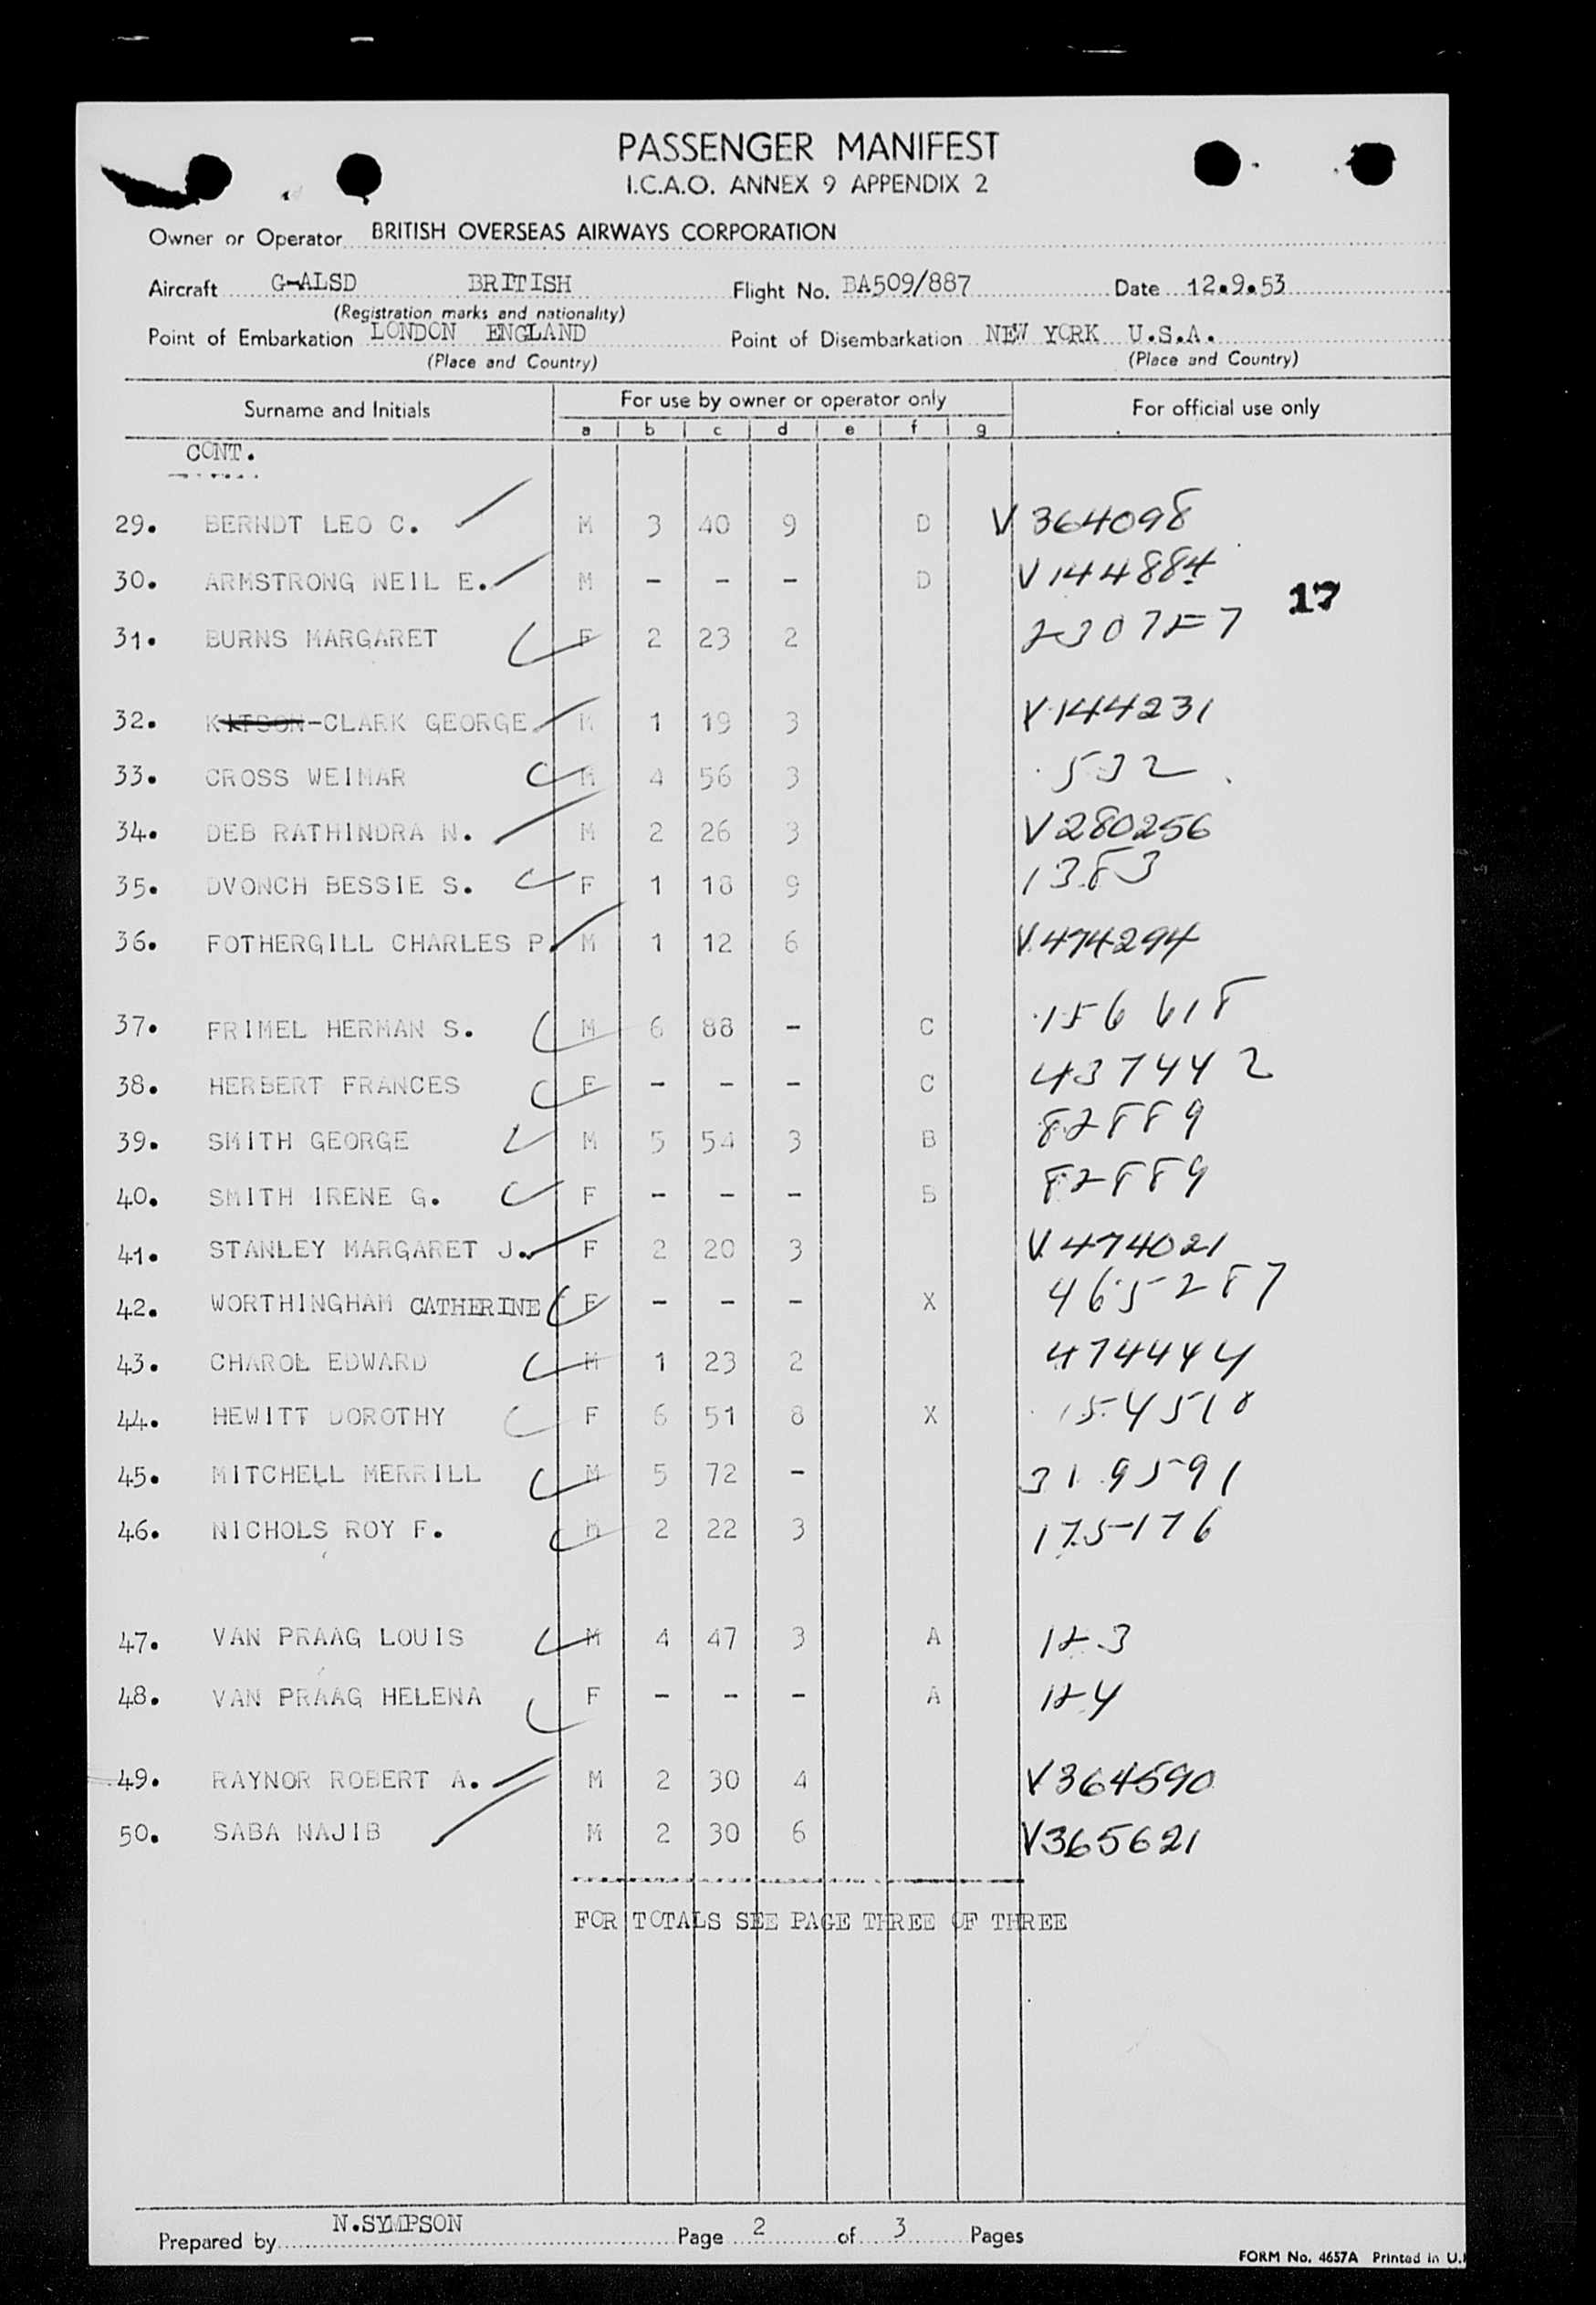 PASSENGER MANIFEST
I.C.A.O. ANNEX 9 APPENDIX 2
Owner or Operator BRITISH OVERSEAS AIRWAYS CORPORATION
Aircraft G-ALSD BRITISH Flight No. BA509/887 Date 12.9.53
(Registration marks and nationality)
Point of Embarkation LONDON ENGLAND Point of Disembarkation NEW YORK U.S.A.
(Place and Country) (Place and Country)
Surname and Initials For use by owner or operator only For official use only
a b c d e f g
CONT.
29. BERNDT LEO C. M 3 40 9 D V 364098
30. ARMSTRONG NEIL E. M - - - D V 144884
17
31. BURNS MARGARET F 2 23 2
32. KITSON-CLARK GEORGE M 1 19 3 V 144231
33. CROSS WEIMAR M 4 56 3 532
34. DEB RATHINDRA N. M 2 26 3 V 280256
35. DVONCH BESSIE S. F 1 18 9 1383
36. FOTHERGILL CHARLES P M 1 12 6 V 474294
37. FRIMEL HERMAN S. M 6 88 - C 156618
38. HERBERT FRANCES F - - - C 437442
39. SMITH GEORGE M 5 54 3 B 82889
40. SMITH IRENE G. F - - - B 82889
41. STANLEY MARGARET J. F 2 20 3 V 474021
42. WORTHINGHAM CATHERINE F - - - X 465287
43. CHAROL EDWARD M 1 23 2 474444
44. HEWITT DOROTHY F 6 51 8 X 154518
45. MITCHELL MERRILL M 5 72 - 319591
46. NICHOLS ROY F. M 2 22 3 175176
47. VAN PRAAG LOUIS M 4 47 3 A 123
48. VAN PRAAG HELENA F - - - A 124
49. RAYNOR ROBERT A. M 2 30 4 V 364590
50. SABA NAJIB M 2 30 6 V 365621
FOR TOTALS SEE PAGE THREE OF THREE
Prepared by N.SYMPSON Page 2 of 3 Pages
FORM No. 4657A Printed in